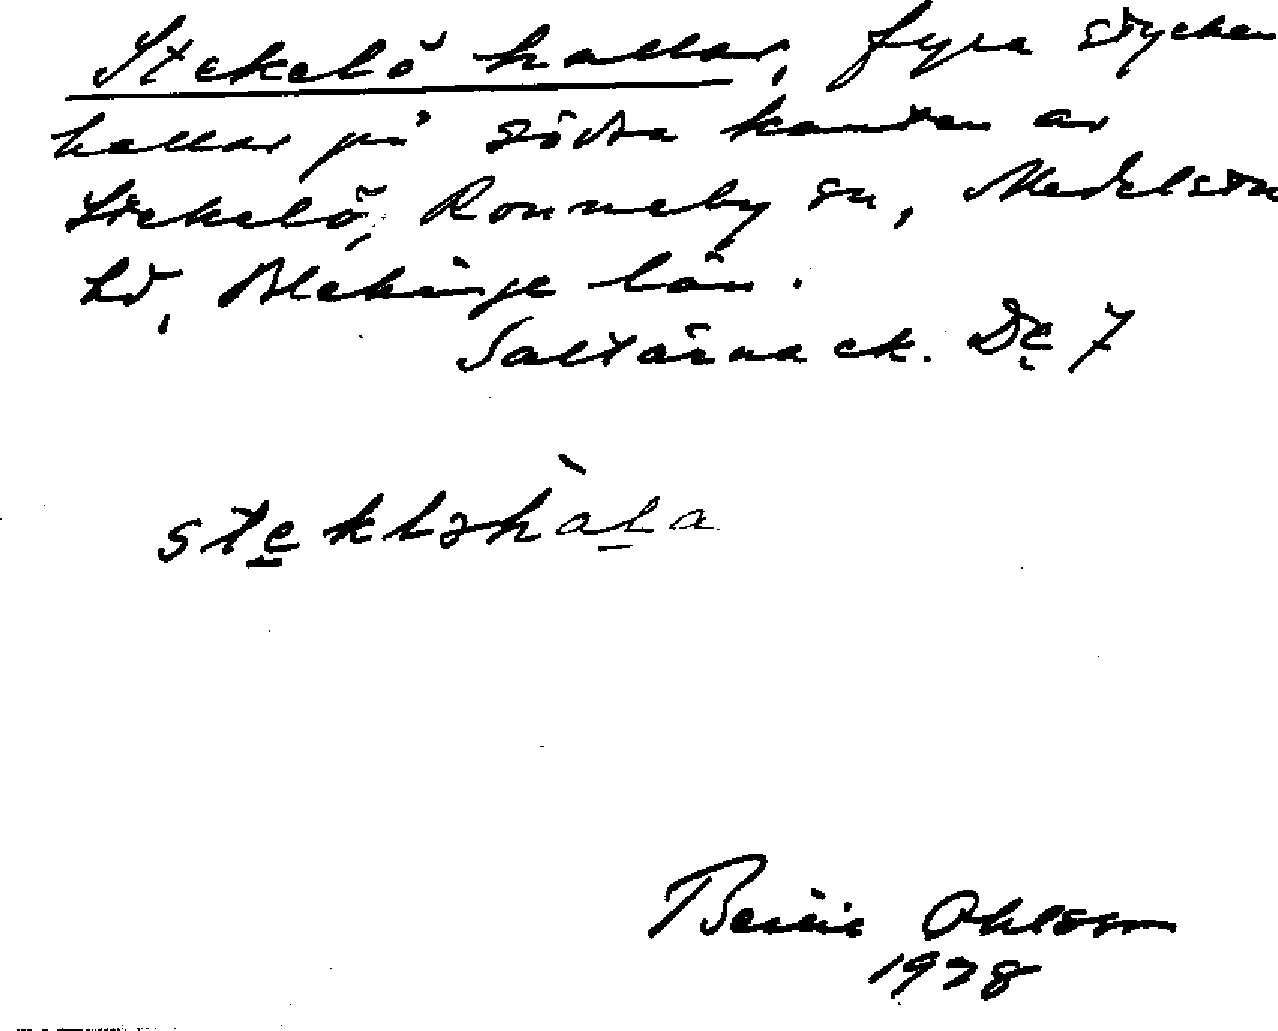 Stekelö hallar, fyra stycken
hallar på södra kanten av
Stekelö, Ronneby sn, Medelsta
hd, Blekinge län.
Saltärna ek. De 7
steklshala
Bertil Ohlsson
1978